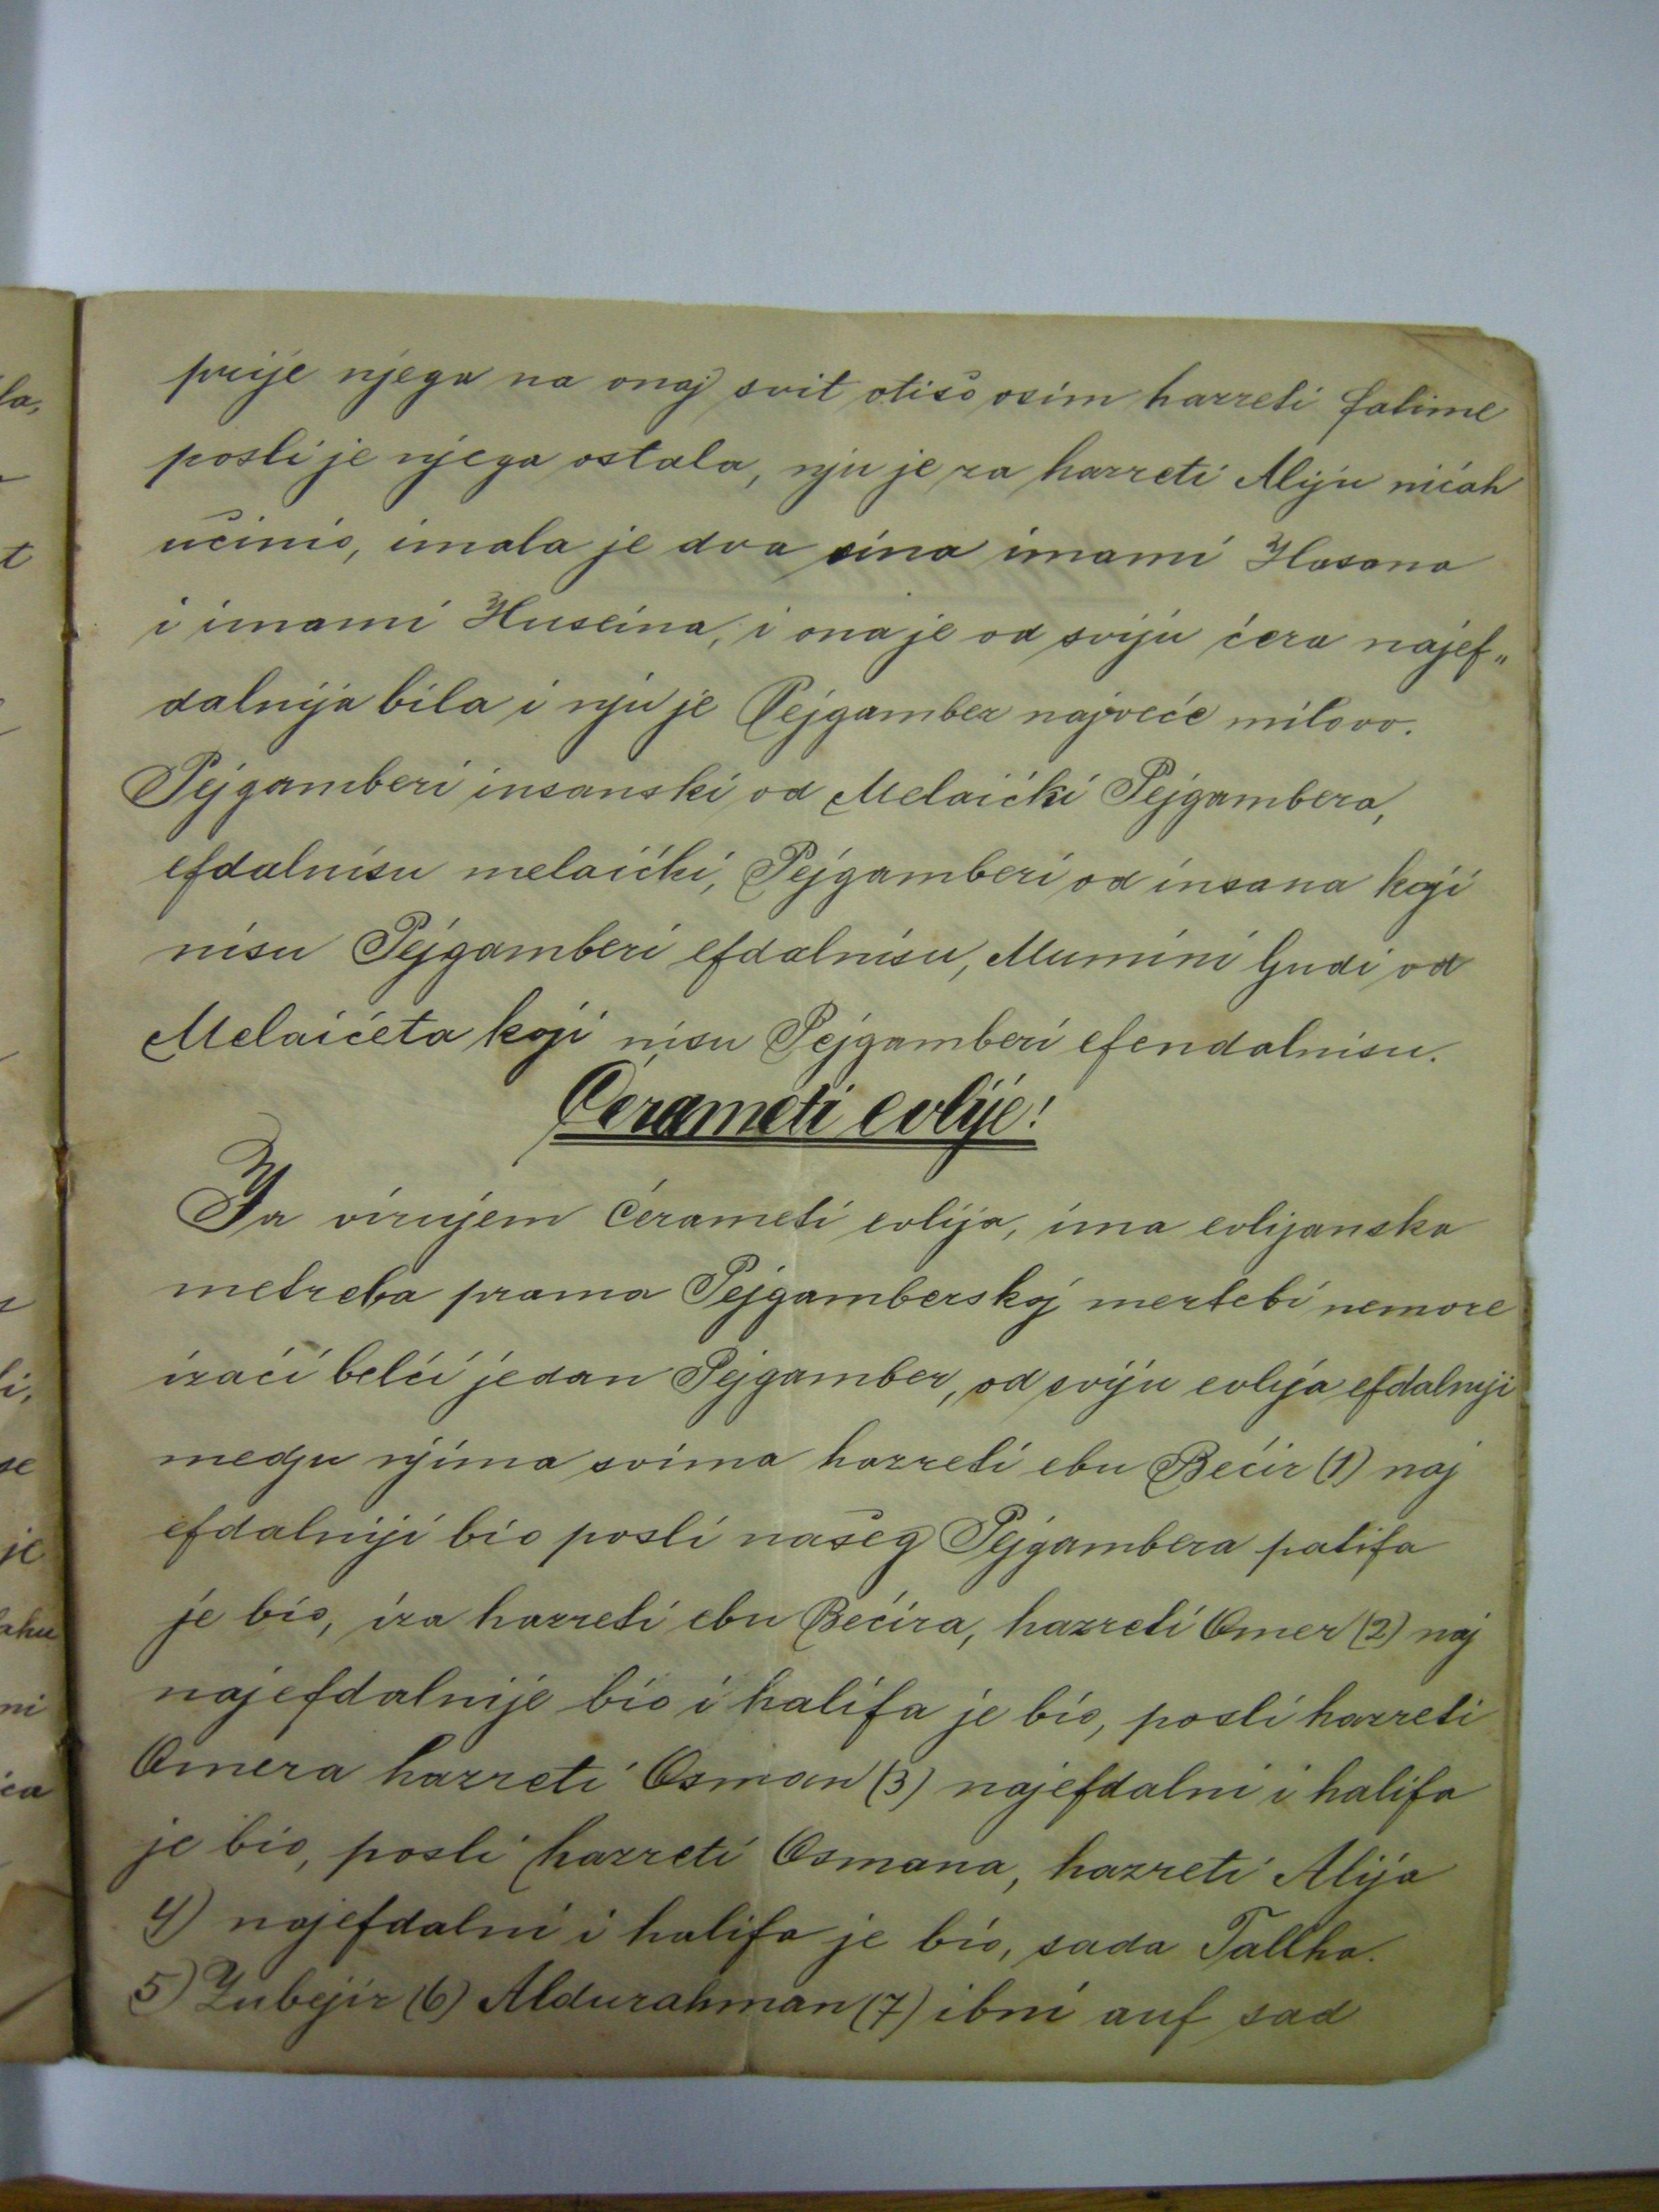 prije njega na onaj svit otišo osim hazreti fatime
posli je njega ostala, nju je za hazreti Aliju nićah
učinio, imala je dva sina imami Hasana
i imami Huseina, i ona je od sviju ćera najef„
dalnija bila i nju je Pejgamber najveće milovo.
Pejgamberi insanski od Melaićki Pejgambera,
efdalnisu melaićki, Pejgamberi od insana koji
nisu Pejgamberi efdalnisu, Mumini ljudi od
Melaićeta koji nisu Pejgamberi efendalnisu.
Ćerameti evlije!
Ja virujem ćerameti evlija, ima evlijanska
metreba prama Pejgamberskoj mertebi nemore
izaći belći jedan Pejgamber, od sviju evlija efdalniji
medju njima svima hazreti ebu Bećir (1) naj
efdalniji bio posli našeg Pejgambera patifa
je bio, iza hazreti ebu Bećira, hazreti Omer (2) naj
najefdalnije bio i halifa je bio, posli hazreti
Omera hazreti Osman (3) najefdalni i halifa
je bio, posli hazreti Osmana, hazreti Alija
4) najefdalni i halifa je bio, sada Tallha.
5) Zubejir (6) Aldurahman (7) ibni auf sad
la,
t
li,
se
je
ahu
ni
ća